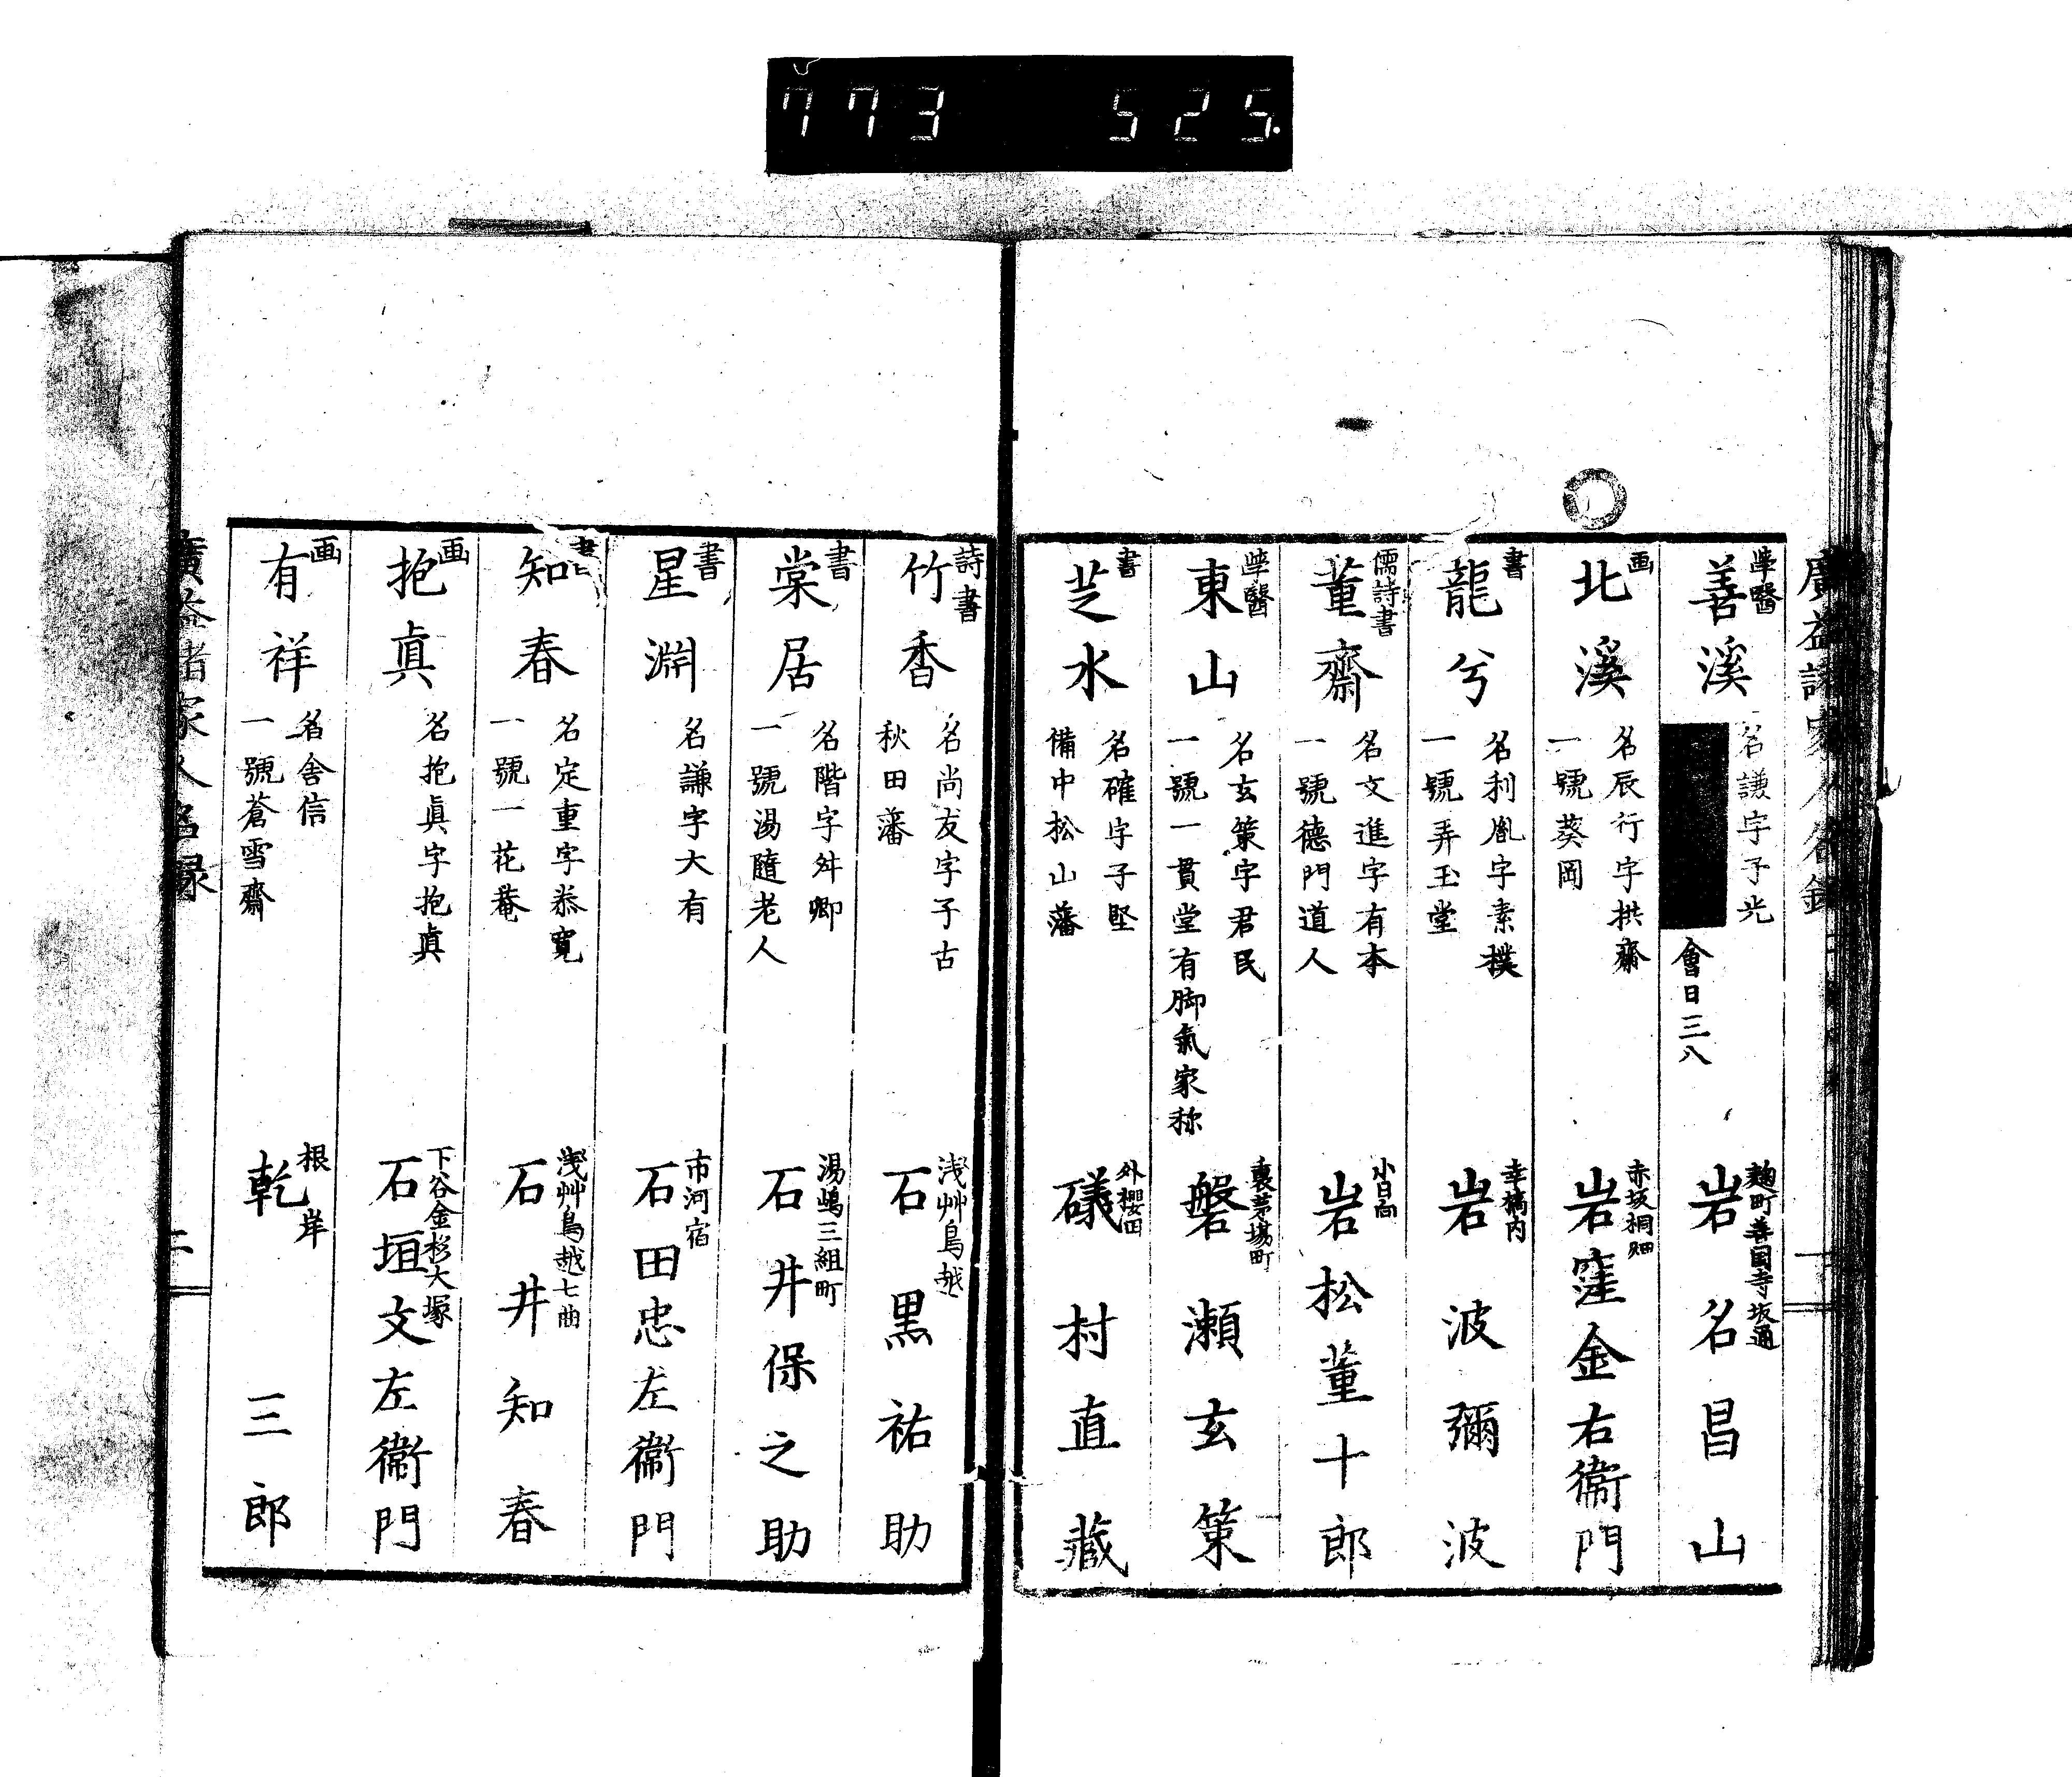 773 525
廣益諸家人名録
學醫
善溪
名謙字子光
會日三八
麹町善国寺坂通
岩名昌山
画
北溪
名辰行字拱齋
一號葵岡
赤坂桐畑
岩窪金右衞門
書
龍兮
名利胤字素撲
一號弄玉堂
幸橋内
岩波彌波
儒詩書
董齋
名文進字有本
一號德門道人
小日向
岩松董十郎
學醫
東山
名玄策字君民
一號一貫堂有脚氣家称
裏茅場町
磐瀬玄策
書
芝水
名確字子堅
備中松山藩
外櫻田
礒村直藏
詩書
竹香
名尚友字子古
秋田藩
浅艸鳥越
石黒祐助
書
棠居
名階字舛卿
一號湯隨老人
湯嶋三組町
石井保之助
書
星淵
名謙字大有
市河宿
石田忠左衞門
書
知春
名定重字恭寛
一號一花菴
浅艸鳥越七曲
石井知春
画
抱眞
名抱眞字抱眞
下谷金杉大塚
石垣文左衞門
画
有祥
名舎信
一號蒼雪齋
根岸
乾三郎
廣益諸家人名録
二